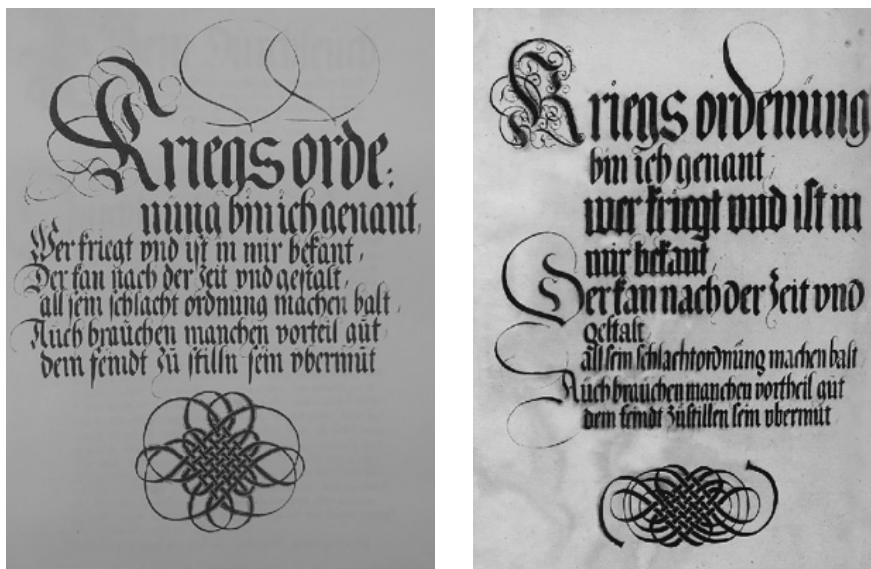 Kriegs orde:
nung bin ich genant,
Wer kriegt vnd ist in mir bekant,
Der kan nach der zeit vnd gestalt,
all sein schlacht ordnung machen balt,
Auch brauchen manchen vorteil gůt
dem feindt zů stilln sein vbermůt
Kriegs ordenůng
bin ich genant
wer kriegt vnd ist in
mir bekant
Der kan nach der zeit vnd
gestalt
all sein schlachtordnůng machen balt
Aůch braůchen manchen vortheil gůt
dem feindt zůstillen sein vbermůt